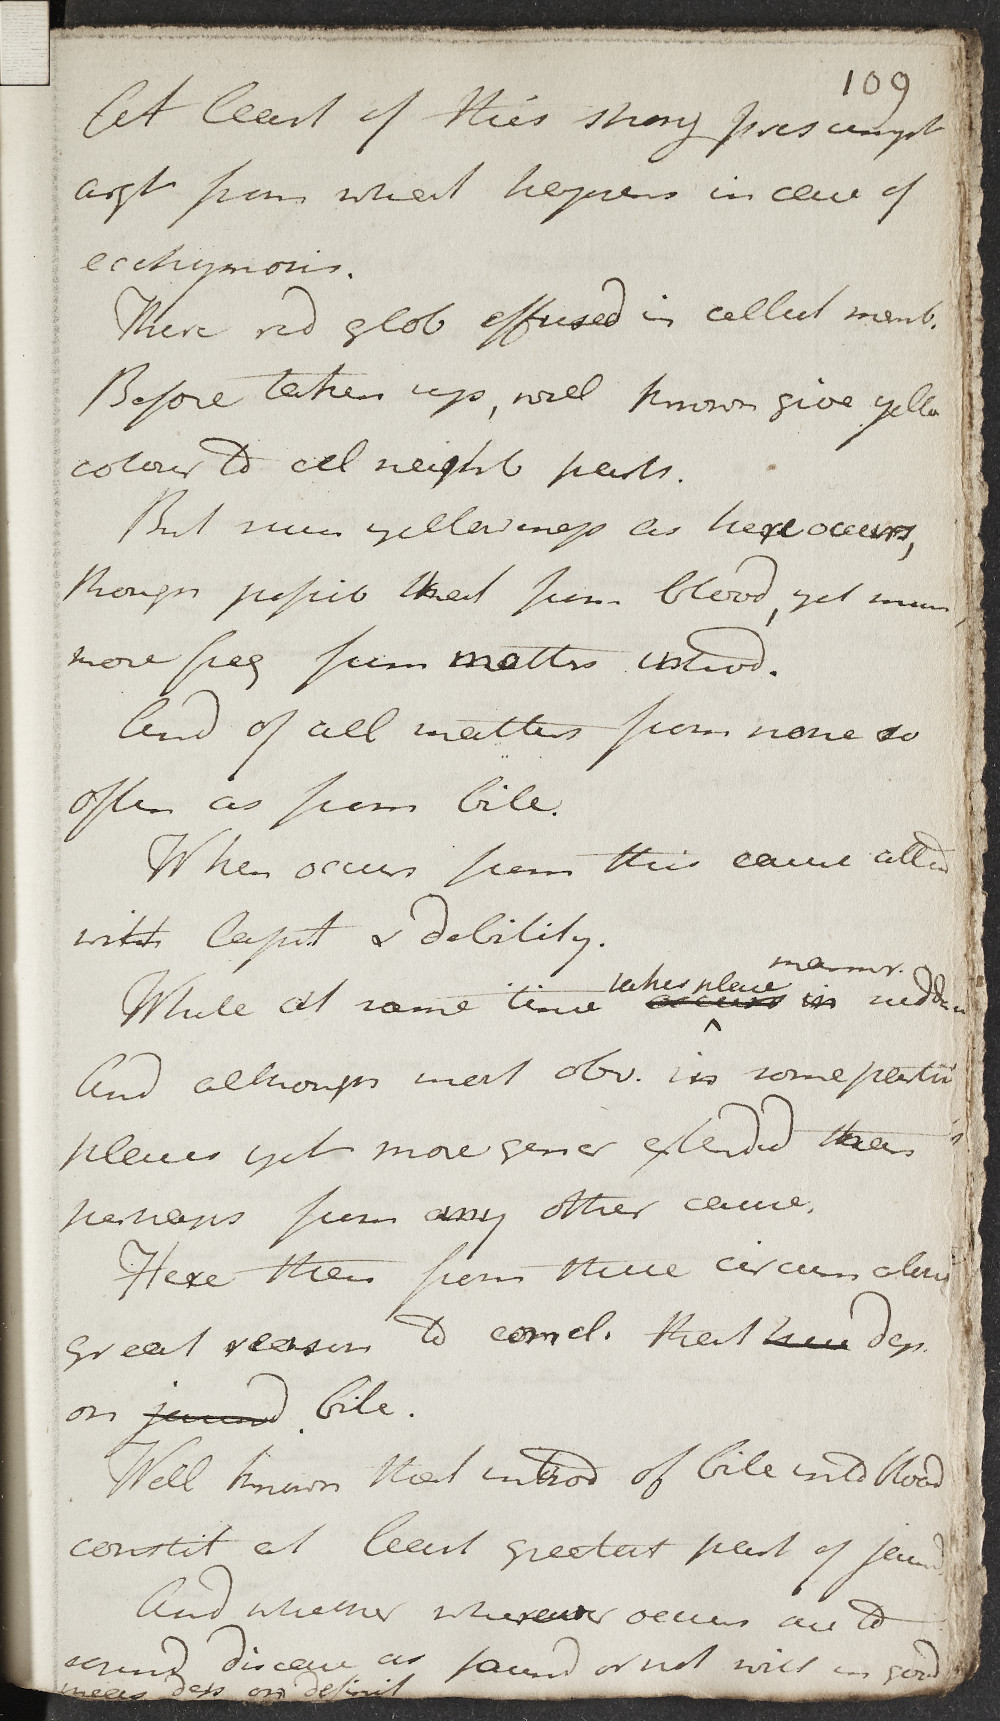 109
At least of this strong presumpt
argt from what happens in case of
ecchymosis.
There red glob effused in cellul memb.
Before taken up, well known give yello
colour to all neighb parts.
But such yellowness as here occurs,
though possib that from blood, yet much
more freq from matters introd.
And of all matters from none so
often as from bile.
When occurs from this cause attend
with & debility.
takes place manner.
While at same time occurs in sudden
And although most obv. in some particu
places yet more gener extended than
perhaps from any other cause.
Here then from these circumstan
great reason to concl. that here dep.
on jaund bile.
Well known that introd of bile into blood
constit at least greatest part of jaund
And whether wherever occurs are to
disease as jaund or not will in good
meas dep on definit